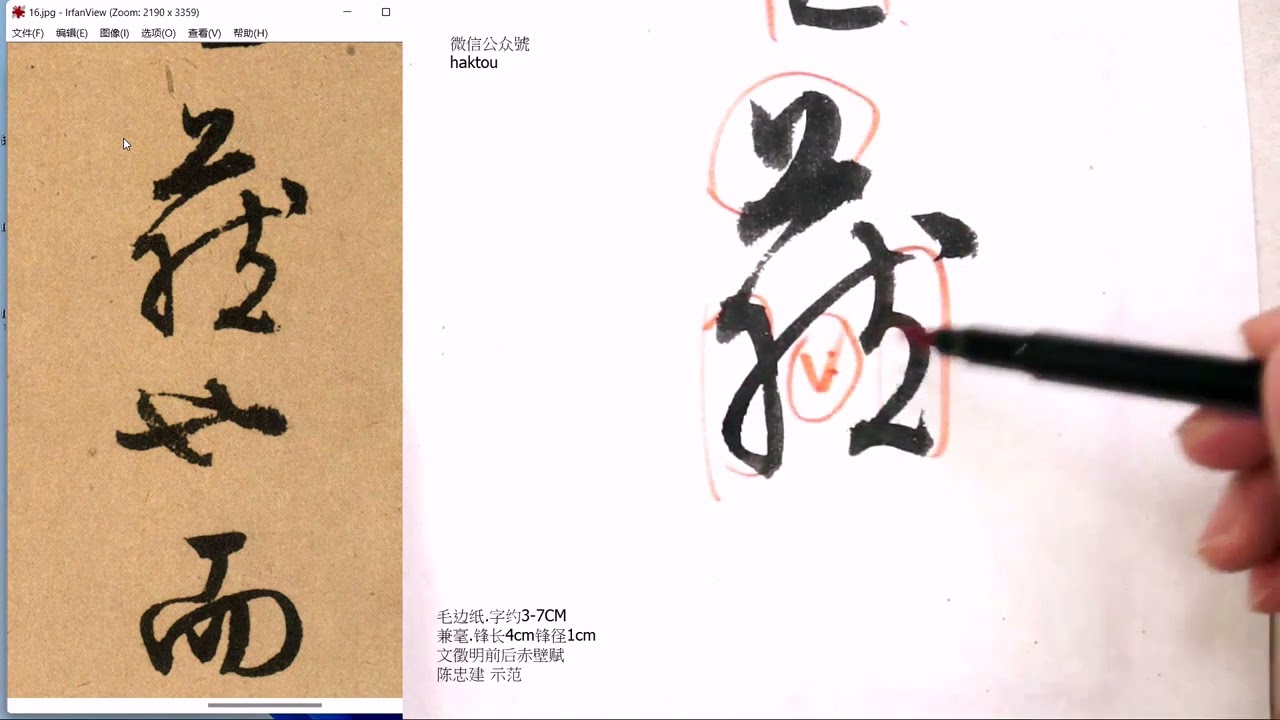 16.jpg - IrfanView (Zoom: 2190 x 3359)
文件(F) 编辑(E) 图像(I) 选项(O) 查看(V) 帮助(H)
藏
也
而
微信公众號
haktou
藏
毛边纸.字约3-7CM
兼毫.锋长4cm锋径1cm
文徵明前后赤壁赋
陈忠建 示范